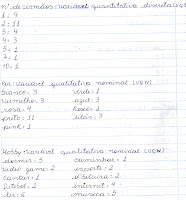 nº de irmãos: variável quantitativa discreta
1: 4
2: 11
3: 4
4: 3
5: 1
7: 1
10: 1
Cor: variável qualitativa nominal (VQN)
branco: 3 verde: 1
vermelho: 3 azul: 3
rosa: 4 roxo: 1
preto: 11 lilás: 3
pink: 1
Hobby: variável qualitativa nominal (VQN)
dormir: 5 caminhar: 1
video game: 2 esporte: 2
cantar: 1 leitura: 2
futebol: 2 internet: 4
ler: 6 música: 5